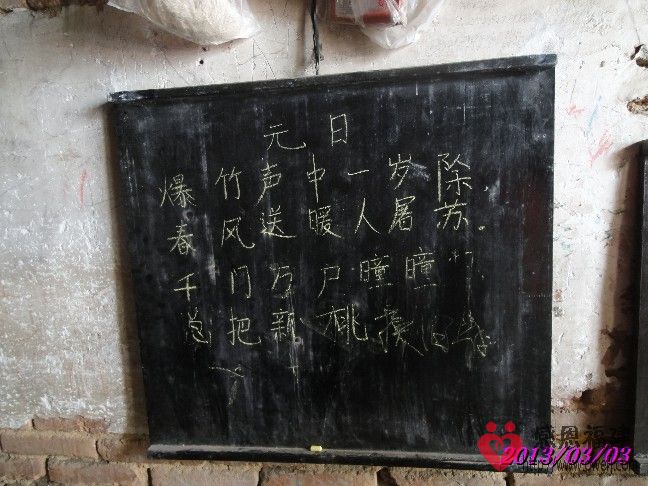 元日
爆竹声中一岁除，
春风送暖人屠苏。
千门万户瞳瞳
总把新桃换旧
2013/03/03